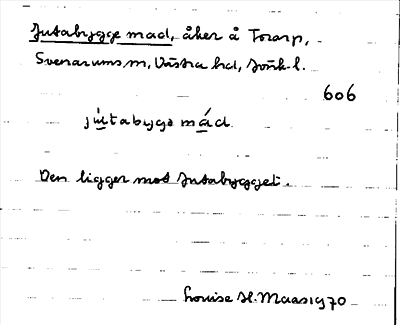 Jutabygge mad, åker å Torarp,
Svenarums sn, Västra hd, Jönk. l.
606
jùtabygə mád.
Den ligger mot Jutabygget.
Louise H. Maas 1970